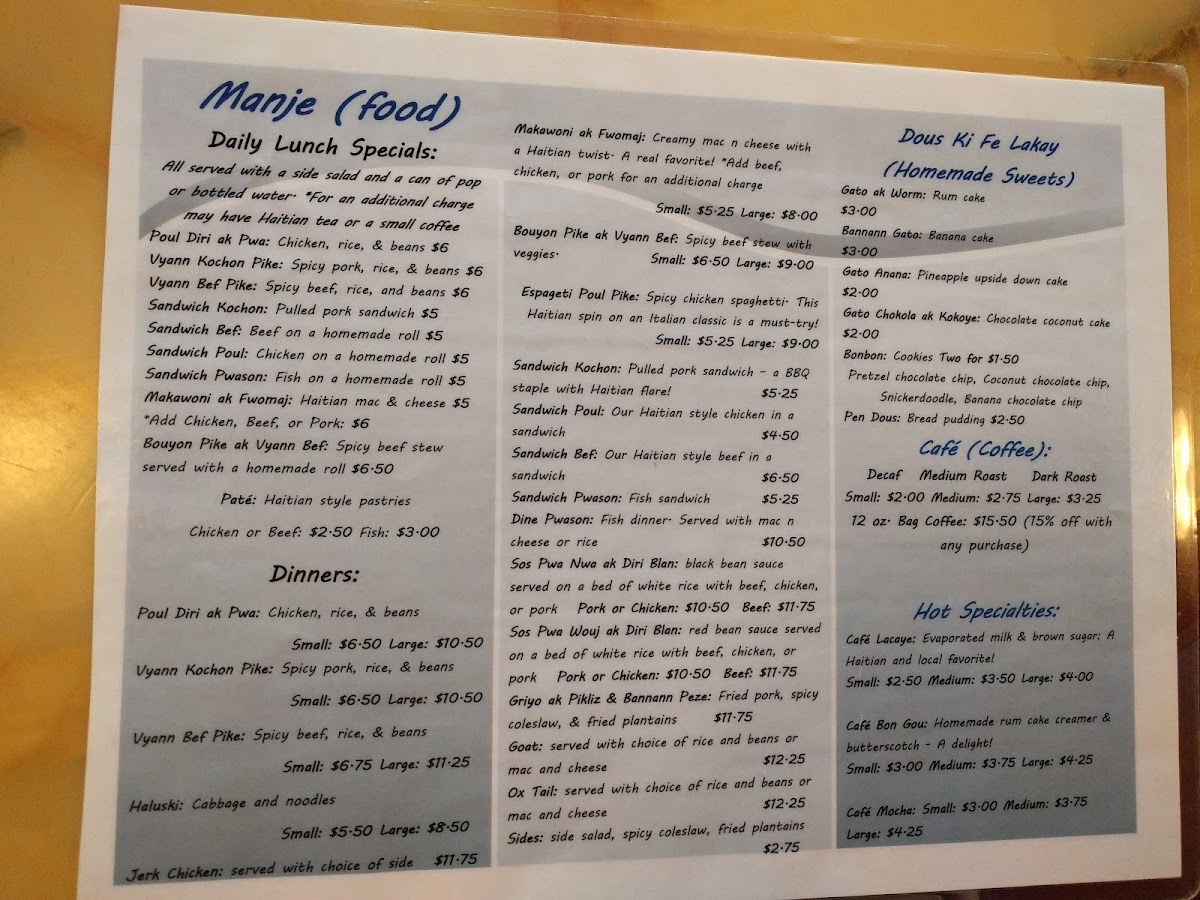 Manje (food)
Daily Lunch Specials:
All served with a side salad and a can of pop
or bottled water. *For an additional charge
may have Haitian tea or a small coffee
Poul Diri ak Pwa: Chicken, rice, & beans $6
Vyann Kochon Pike: Spicy pork, rice, & beans $6
Vyann Bef Pike: Spicy beef, rice, and beans $6
Sandwich Kochon: Pulled pork sandwich $5
Sandwich Bef: Beef on a homemade roll $5
Sandwich Poul: Chicken on a homemade roll $5
Sandwich Pwason: Fish on a homemade roll $5
Makawoni ak Fwomaj: Haitian mac & cheese $5
*Add Chicken, Beef, or Pork: $6
Bouyon Pike ak Vyann Bef: Spicy beef stew
served with a homemade roll $6.50
Paté: Haitian style pastries
Chicken or Beef: $2.50 Fish: $3.00
Dinners:
Poul Diri ak Pwa: Chicken, rice, & beans
Small: $6.50 Large: $10.50
Vyann Kochon Pike: Spicy pork, rice, & beans
Small: $6.50 Large: $10.50
Vyann Bef Pike: Spicy beef, rice, & beans
Small: $6.75 Large: $11.25
Haluski: Cabbage and noodles
Small: $5.50 Large: $8.50
Jerk Chicken: served with choice of side $11.75
Makawoni ak Fwomaj: Creamy mac n cheese with
a Haitian twist. A real favorite! *Add beef,
chicken, or pork for an additional charge
Small: $5.25 Large: $8.00
Bouyon Pike ak Vyann Bef: Spicy beef stew with
veggies. Small: $6.50 Large: $9.00
Espageti Poul Pike: Spicy chicken spaghetti. This
Haitian spin on an Italian classic is a must-try!
Small: $5.25 Large: $9.00
Sandwich Kochon: Pulled pork sandwich - a BBQ
staple with Haitian flare! $5.25
Sandwich Poul: Our Haitian style chicken in a
sandwich $4.50
Sandwich Bef: Our Haitian style beef in a
sandwich $6.50
Sandwich Pwason: Fish sandwich $5.25
Dine Pwason: Fish dinner. Served with mac n
cheese or rice $10.50
Sos Pwa Nwa ak Diri Blan: black bean sauce
served on a bed of white rice with beef, chicken,
or pork Pork or Chicken: $10.50 Beef: $11.75
Sos Pwa Wouj ak Diri Blan: red bean sauce served
on a bed of white rice with beef, chicken, or
pork Pork or Chicken: $10.50 Beef: $11.75
Griyo ak Pikliz & Bannann Peze: Fried pork, spicy
coleslaw, & fried plantains $11.75
Goat: served with choice of rice and beans or
mac and cheese $12.25
Ox Tail: served with choice of rice and beans or
mac and cheese $12.25
Sides: side salad, spicy coleslaw, fried plantains
$2.75
Dous Ki Fe Lakay
(Homemade Sweets)
Gato ak Worm: Rum cake
$3.00
Bannann Gato: Banana cake
$3.00
Gato Anana: Pineapple upside down cake
$2.00
Gato Chokola ak Kokoye: Chocolate coconut cake
$2.00
Bonbon: Cookies Two for $1.50
Pretzel chocolate chip, Coconut chocolate chip,
Snickerdoodle, Banana chocolate chip
Pen Dous: Bread pudding $2.50
Café (Coffee):
Decaf Medium Roast Dark Roast
Small: $2.00 Medium: $2.75 Large: $3.25
12 oz. Bag Coffee: $15.50 (15% off with
any purchase)
Hot Specialties:
Café Lacaye: Evaporated milk & brown sugar: A
Haitian and local favorite!
Small: $2.50 Medium: $3.50 Large: $4.00
Café Bon Gou: Homemade rum cake creamer &
butterscotch - A delight!
Small: $3.00 Medium: $3.75 Large: $4.25
Café Mocha: Small: $3.00 Medium: $3.75
Large: $4.25